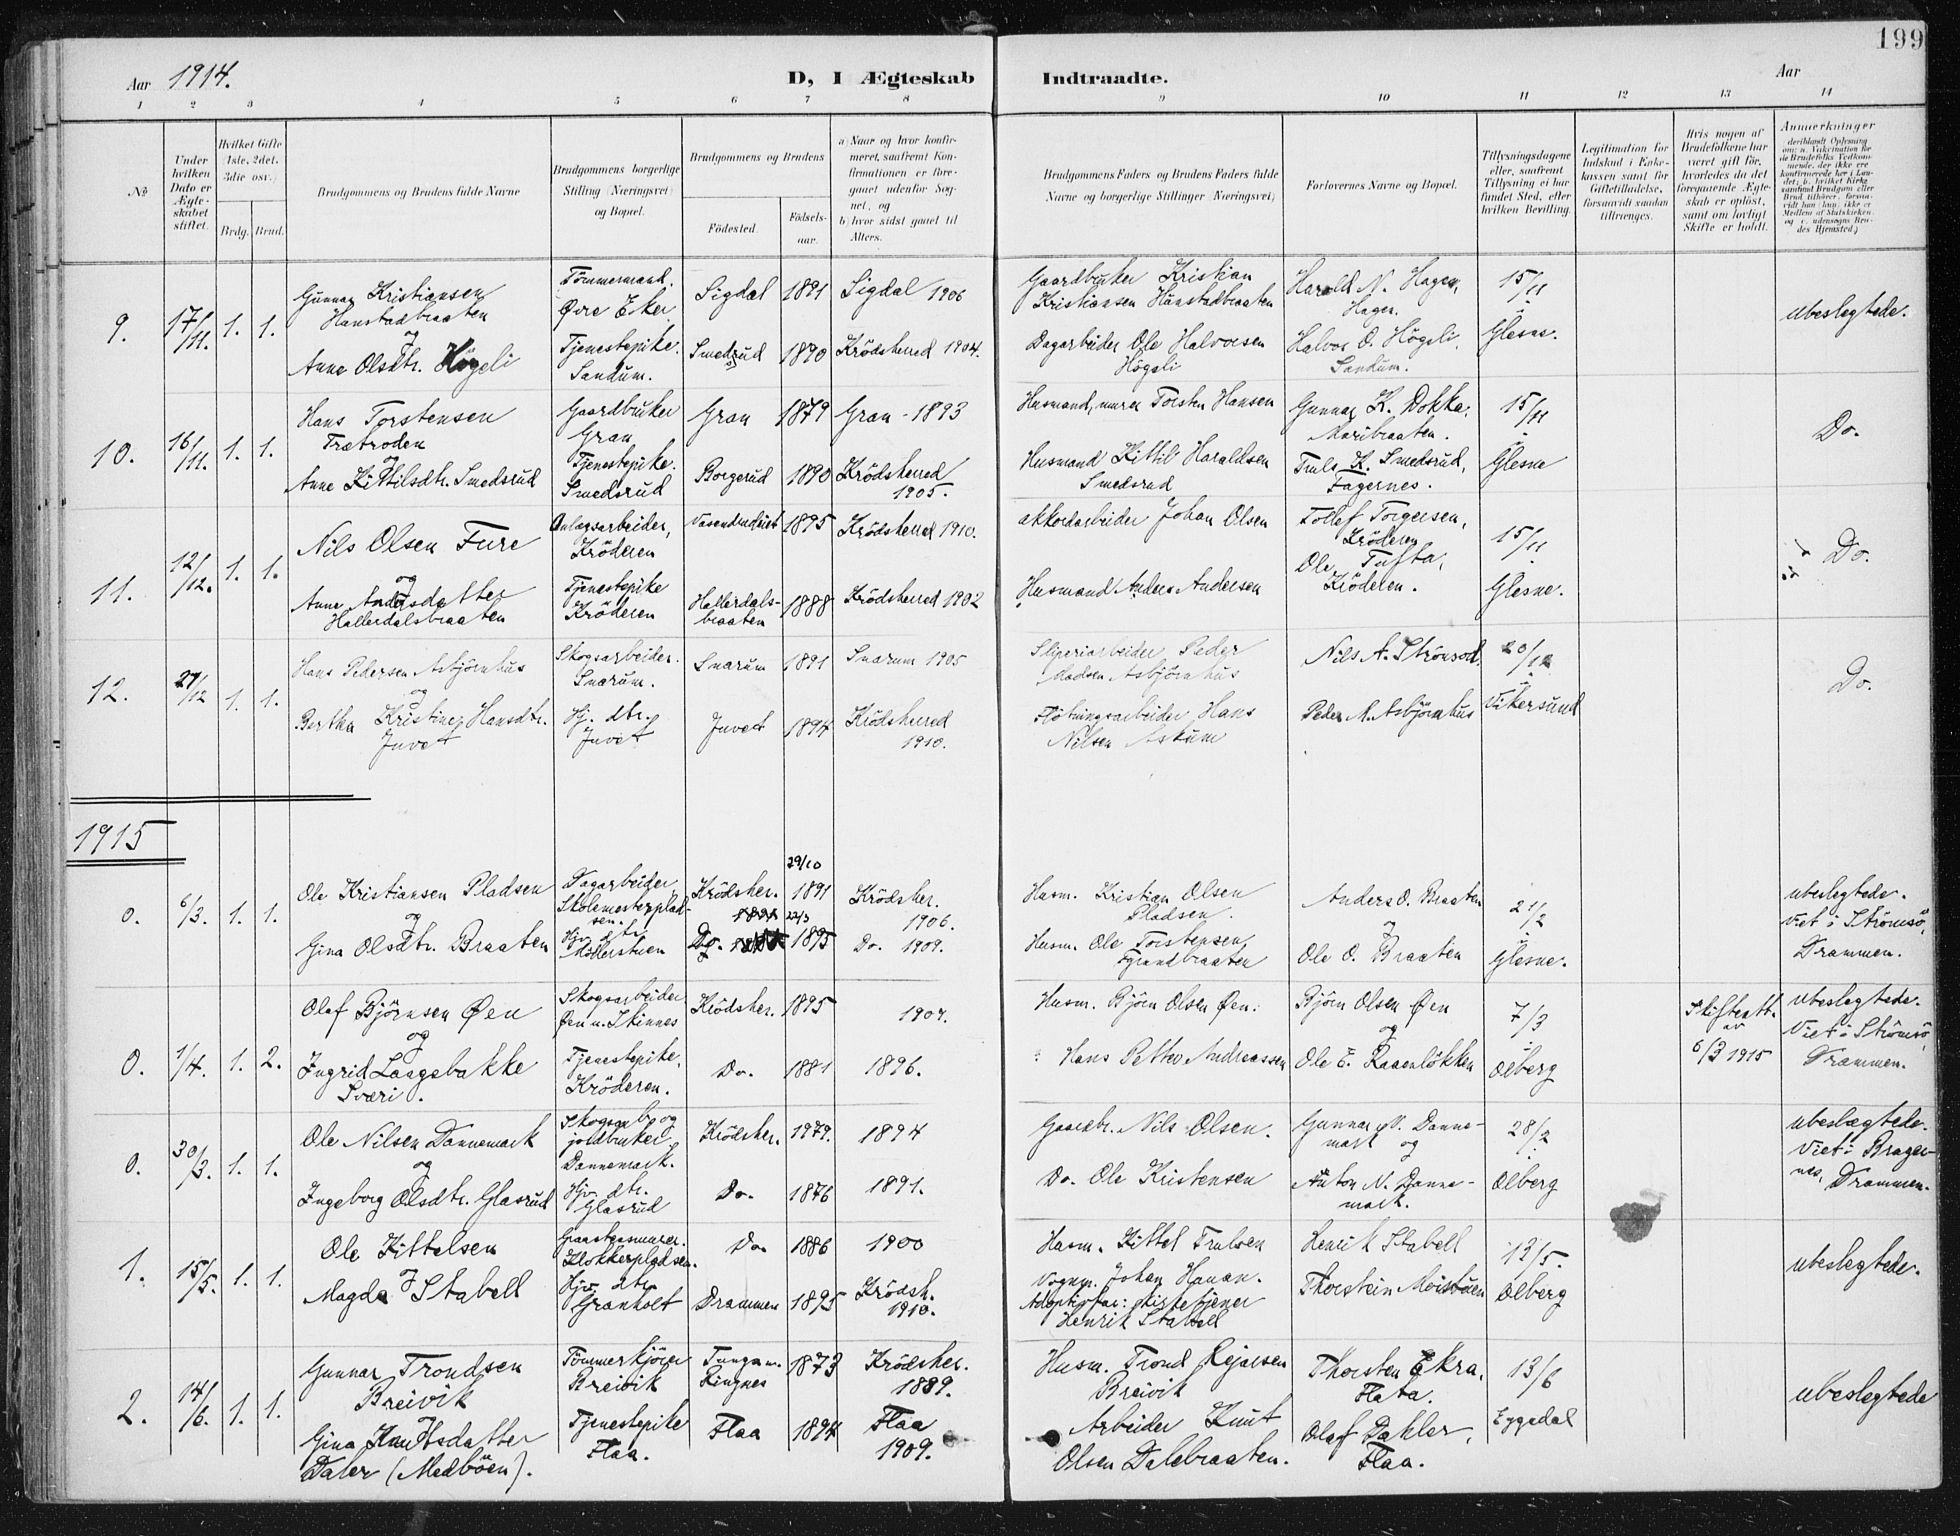 199
Aar 1914.
D, I Ægteskab Indtraadte.
Aar
1 2 3 4 5 6 7 8 9 10 11 12 13 14
№
Under hvilken Dato er Ægte-skabet stiftet.
Hvilket Gifte (1ste, 2det, 3die osv.)
Brdg. Brud.
Brudgommens og Brudens fulde Navne
Brudgommens borgerlige Stilling (Næringsvei) og Bopæl.
Brudgommens og Brudens
Fødested.
Fødsels-aar.
a) Naar og hvor konfir-meret, saafremt Kon-firmationen er fore-gaaet udenfor Sog-net, og
b) hvor sidst gaaet til Alters.
Brudgommens Faders og Brudens Faders fulde Navne og borgerlige Stillinger (Næringsvei)
Forlovernes Navne og Bopæl.
Tillysningsdagene eller, saafremt Tillysning ei har fundet Sted, efter hvilken Bevilling.
Legitimation for Indskud i Enke-kassen samt for Giftetilladelse, forsaavidt saadan tiltrænges.
Hvis nogen af Brudefolkene har været gift før, hvorledes da det foregaaende Ægte-skab er opløst, samt om lovligt Skifte er holdt.
Anmerkninger
9. 17/11. 1. 1.
Gunnar Kristiansen Hanstadbraaten
og
Anne Olsdtr. Högeli
Tömmermand. Øvre Eker.
Tjenestepike. Sandum.
Sigdal 1891 Sigdal 1906
Smedsrud 1890 Krödsherred 1904.
Gaardbruker Kristian Kristiansen Hanstadbraaten
Dagarbeider Ole Halvorsen Högeli
Harald N. Hagen, Hagen.
Halvor O. Högeli, Sandum.
15/11
Glesne.
ubeslegtede.
10. 16/11. 1. 1.
Hans Torstensen Trætroden
og
Anne Kittilsdtr. Smedsrud
Gaardbruker Gran
Tjenestepike. Smedsrud
Gran 1879 Gran - 1893
Borgerud 1890 Krödsherred 1905.
Husmand, murer Torsten Hansen
Husmand Kittil Haraldsen Smedsrud
Gunnar K. Dokka, Maribraaten.
Truls K. Smedsrud, Fagernes.
15/11
Glesne
Do.
11. 12/12. 1. 1.
Nils Olsen Fure
og
Anne Andersdatter Hallerdalsbraaten
Anlægsarbeider, Kröderen
Tjenestepike Kröderen
1895 Krödsherred 1910.
Hallerdals-braaten 1888 Krödsherred 1902
akkordarbeider Johan Olsen
Husmand Anders Andersen
Tollef Torgersen, Kröderen
Ole Tufta, Kröderen.
15/11
Glesne.
Do.
12. 27/12 1. 1.
Hans Pedersen Asbjörnhus
og
Bertha Kristine Hansdtr. Juvet
Skogsarbeider. Snarum.
Hj. dtr. Juvet
Snarum 1891 Snarum 1905
Juvet 1894 Krödsherred 1910.
Sliperiarbeider Peder Madsen Asbjörnhus
Flötningsarbeider Hans Nilsen Askum
Nils A. Strömsod
Peder M. Asbjörnhus
20/12
Vikersund
Do.
1915
0. 6/3. 1. 1.
Ole Kristiansen Pladsen
og
Gina Olsdtr. Braaten
Dagarbeider, Skolemesterplad-sen.
Hjv. dtr. Möllerstuen
Krödsher. 29/10 1891 Krödsher. 1906.
Do. 22/3 1895 Do. 1909.
Husm. Kristian Olsen Pladsen.
Husm. Ole Torstensen Strandbraaten
Anders O. Braaten
og
Ole O. Braaten
21/2
Glesne.
ubeslegtede.
Viet i Strömsö, Drammen.
0. 1/4. 1. 2.
Olaf Björnsen Øen
og
Ingrid Langebakke Sværi.
Skogsarbeider Øen u. Skinnes
Tjenestepike, Kröderen.
Krödsher. 1895 1909.
Do. 1881 1896.
Husm. Björn Olsen Øen.
Hans Petter Andreassen
Björn Olsen Øen
og
Ole E. Raaenlökken
7/3
Olberg
Skifteatt. av 6/3 1915
ubeslegtede.
Viet i Strömsö, Drammen.
0. 30/3. 1. 1.
Ole Nilsen Dannemark
og
Ingeborg Olsdtr. Glasrud
Skogsarb. og jordbruker Dannemark.
Hjv. dtr. Glasrud
Krödsher. 1979. 1894
Do. 1876 1891.
Gaardbr. Nils Olsen.
Do. Ole Kristensen
Gunnar N. Danne-mark og
Anton N. Danne-mark.
28/2
Olberg
ubeslægtede.
Viet i Brager-nes, Drammen.
1. 15/5. 1. 1.
Ole Kittelsen
Magda J Stabell
Graastensmurer. Klokkerpladsen.
Hjv. dtr. Granholt
Do 1886 1900
Drammen 1895 Krödsh. 1910.
Husm. Kittel Trulsen
Vognm. Johan Hanan.
Adoptivfar: kirketjener Henrik Stabell
Henrik Stabell
Thorstein Moistuen
13/5.
Olberg
ubeslegtede.
2. 14/6. 1. 1.
Gunnar Trondsen Breivik
Gina Knutsdatter Daler (Medböen).
Tömmerkjörer Breivik
Tjenestepike Flaa.
Ringnes 1873 Krödsher. 1889.
Flaa 1894 Flaa 1909.
Husm. Trond Rejarsen Breivik
Arbeider Knut Olsen Dalebraaten.
Thorsten Ekra, Flata.
Olaf Dahler, Flaa.
13/6
Eggedal
ubeslegtede